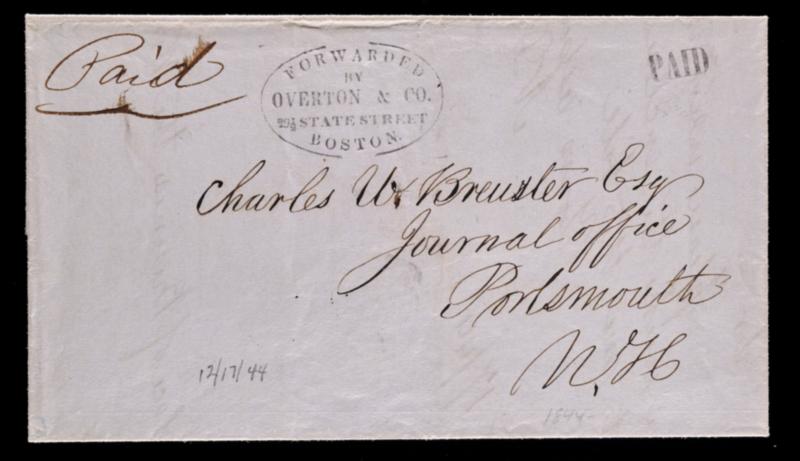 Paid
FORWARDED
BY
OVERTON & CO.
29½ STATE STREET
BOSTON.
PAID
Charles W Brewster Esq
Journal office
Portsmouth
N.H
12/17/44
1844-